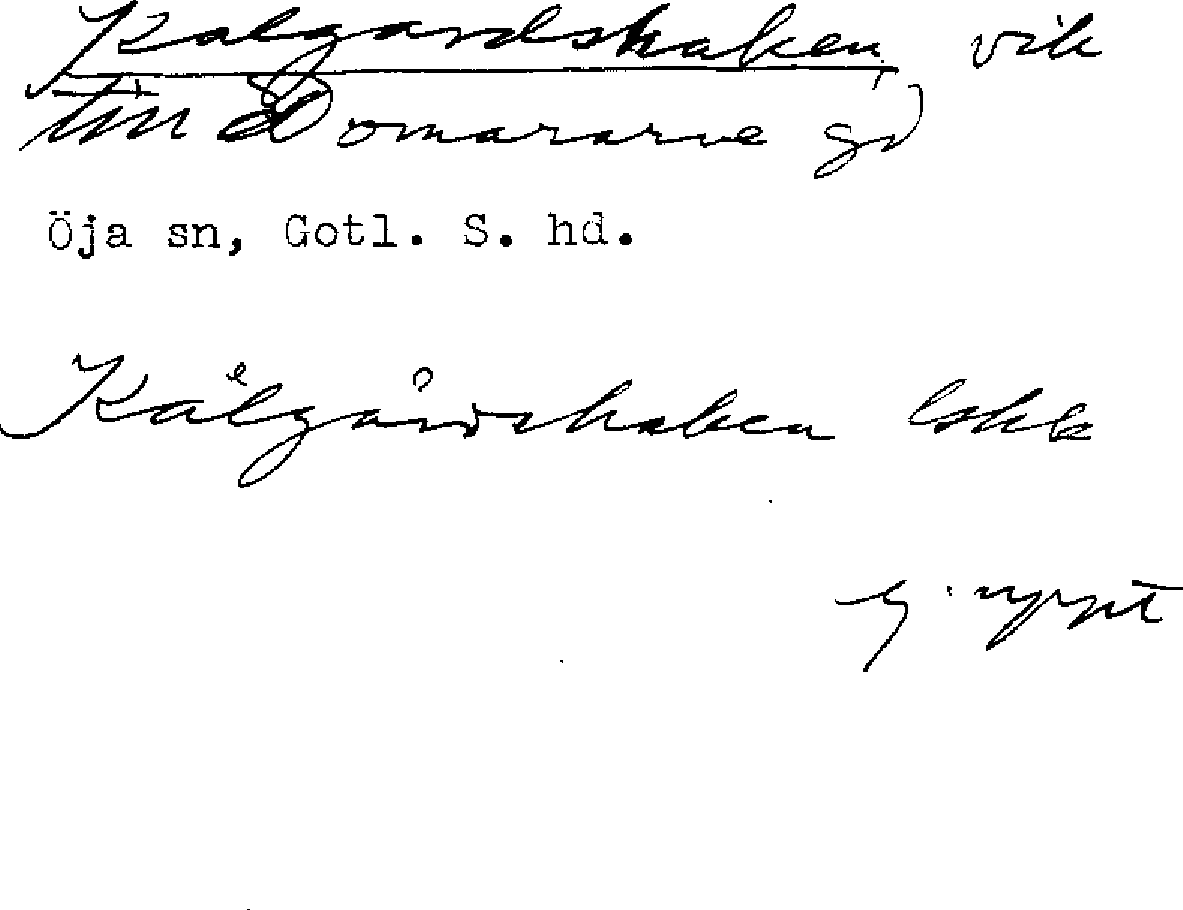 Kalgardshaken, vik
till Domararve gd
Öja sn, Gotl. S. hd.
Kälgårdshaken